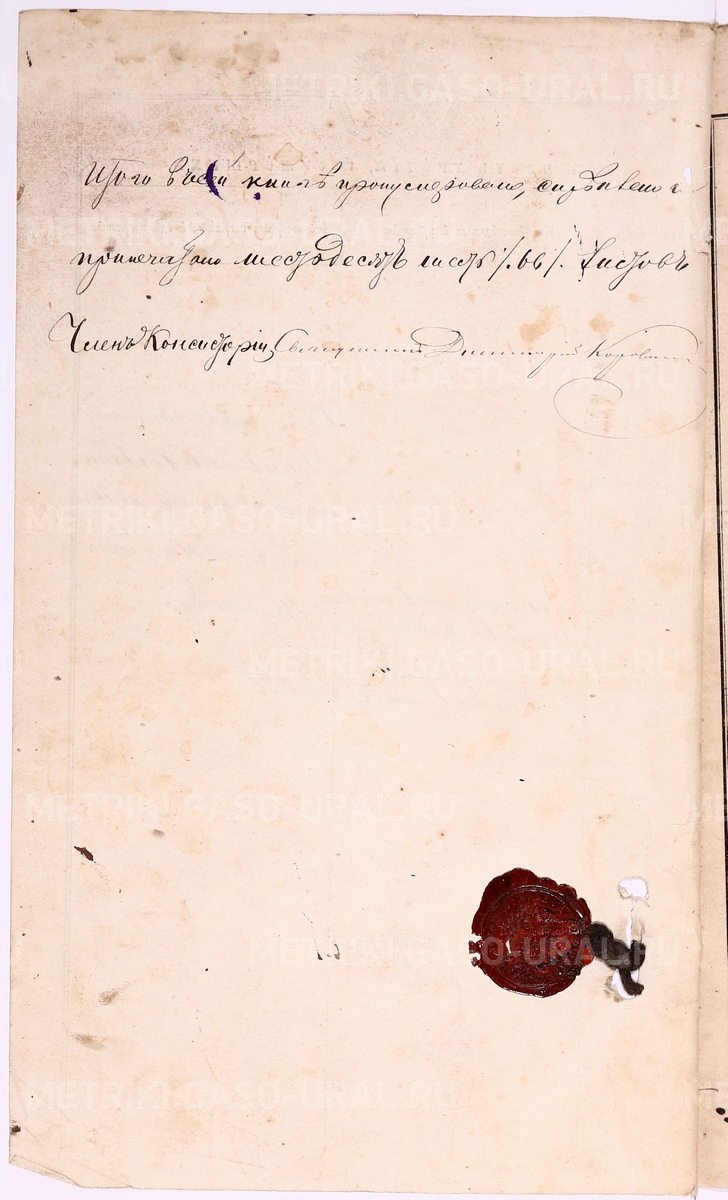 Итого въ сей книгѣ пронумеровано, скрѣплено и
припечатано шестьдесятъ шесть /.66/. листовъ
Членъ Консисторіи, Священникъ Димитрій
METRIKI.GASO-URAL.RU
METRIKI.GASO-URAL.RU
METRIKI.GASO-URAL.RU
METRIKI.GASO-URAL.RU
METRIKI.GASO-URAL.RU
METRIKI.GASO-URAL.RU
METRIKI.GASO-URAL.RU
METRIKI.GASO-URAL.RU